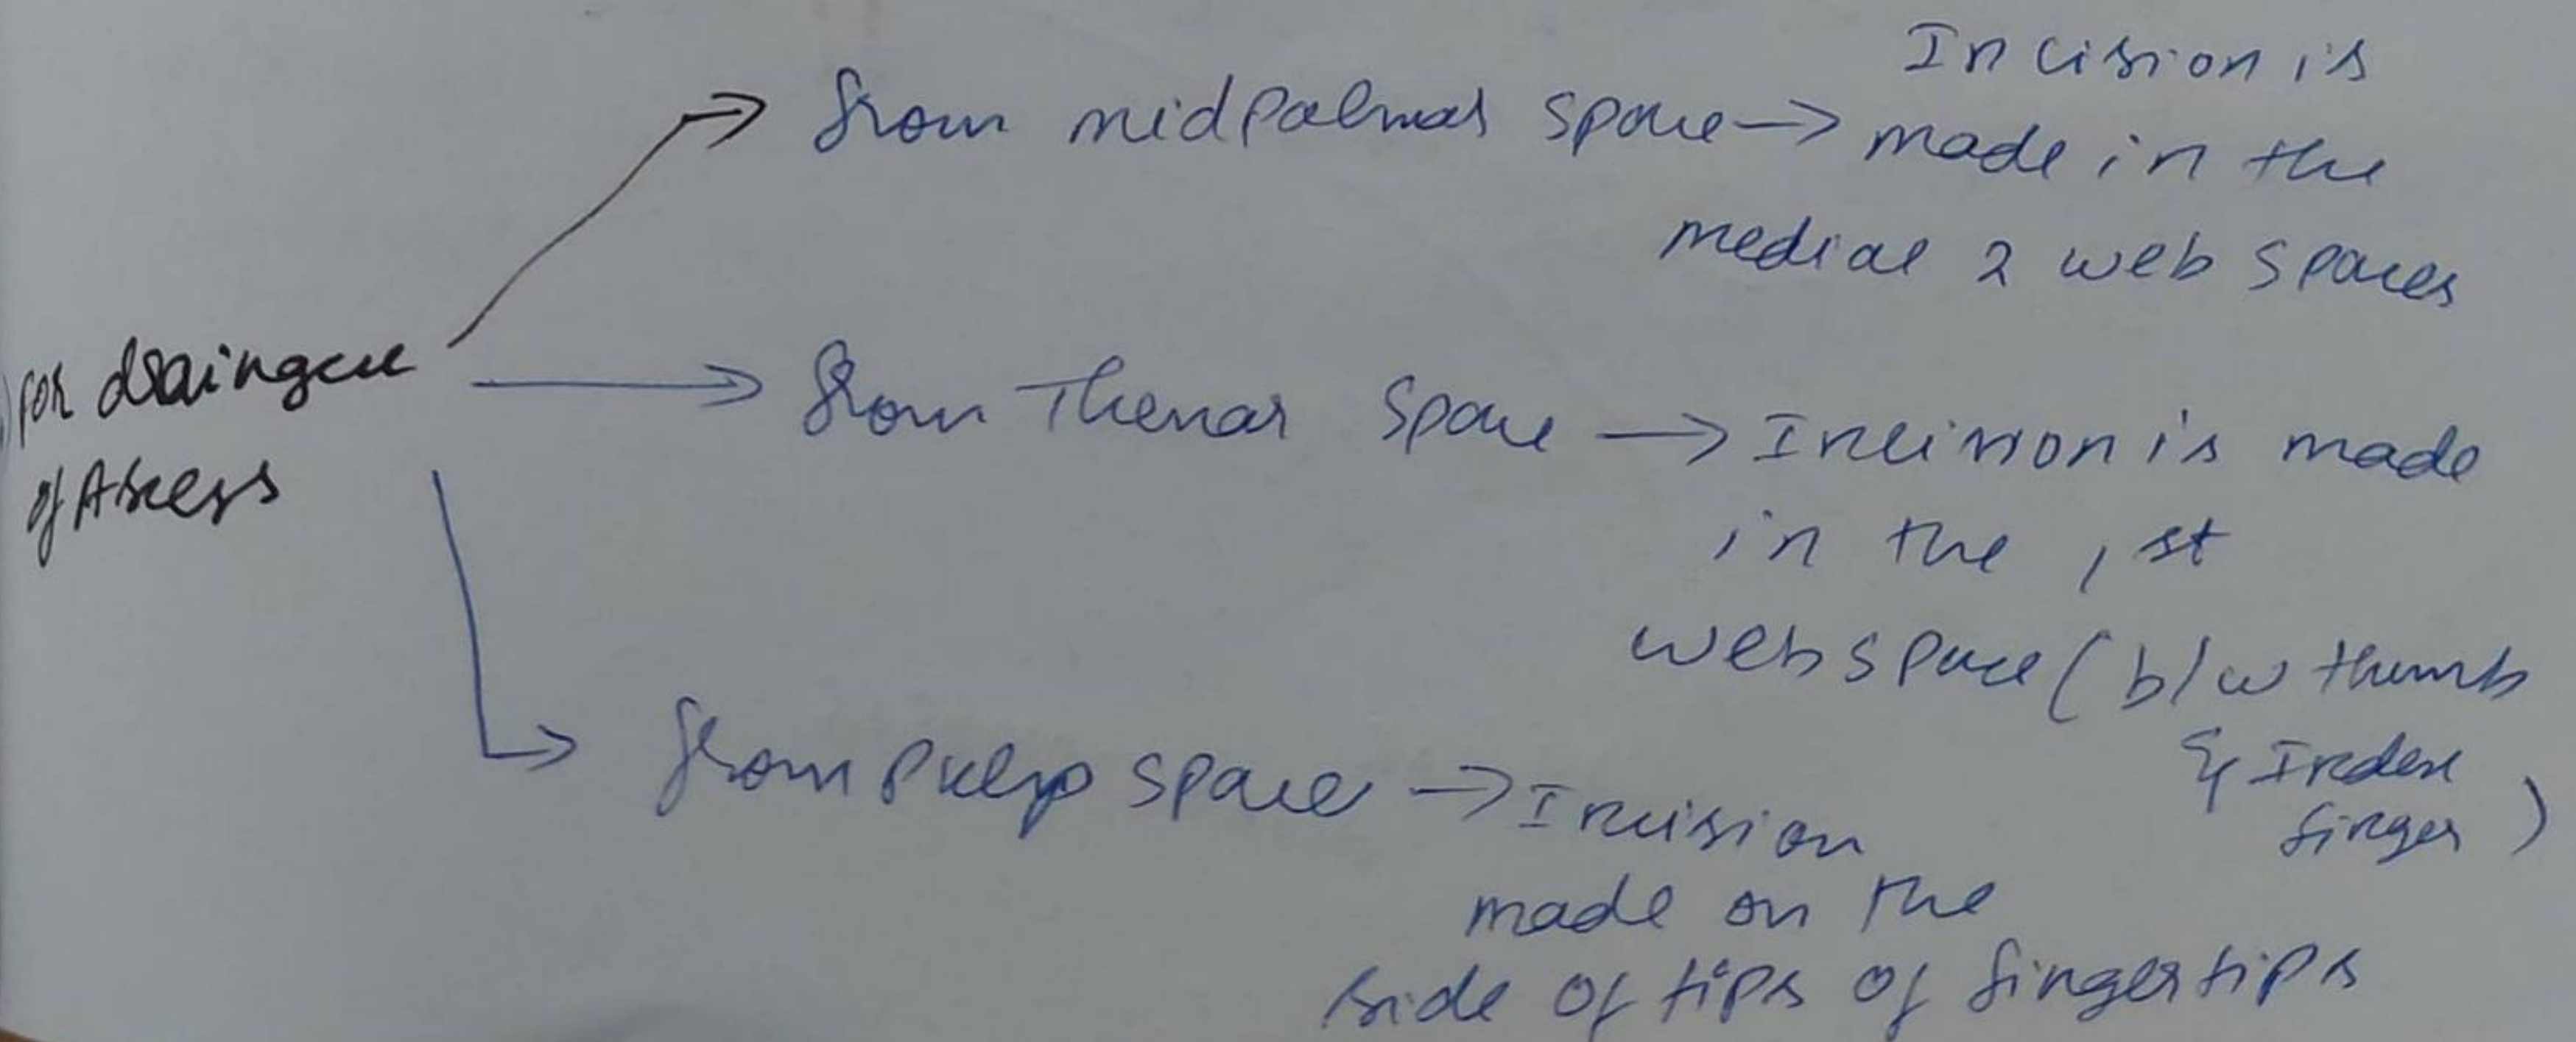 for draingeue
of Abscess
→ from midpalmar space → Incision is
made in the
medial 2 web spaces
→ from Thenar space → Incision is made
in the 1st
webspace (b/w thumb
& Index
finger)
→ from pulp space → Incision
made on the
side of tips of fingertips